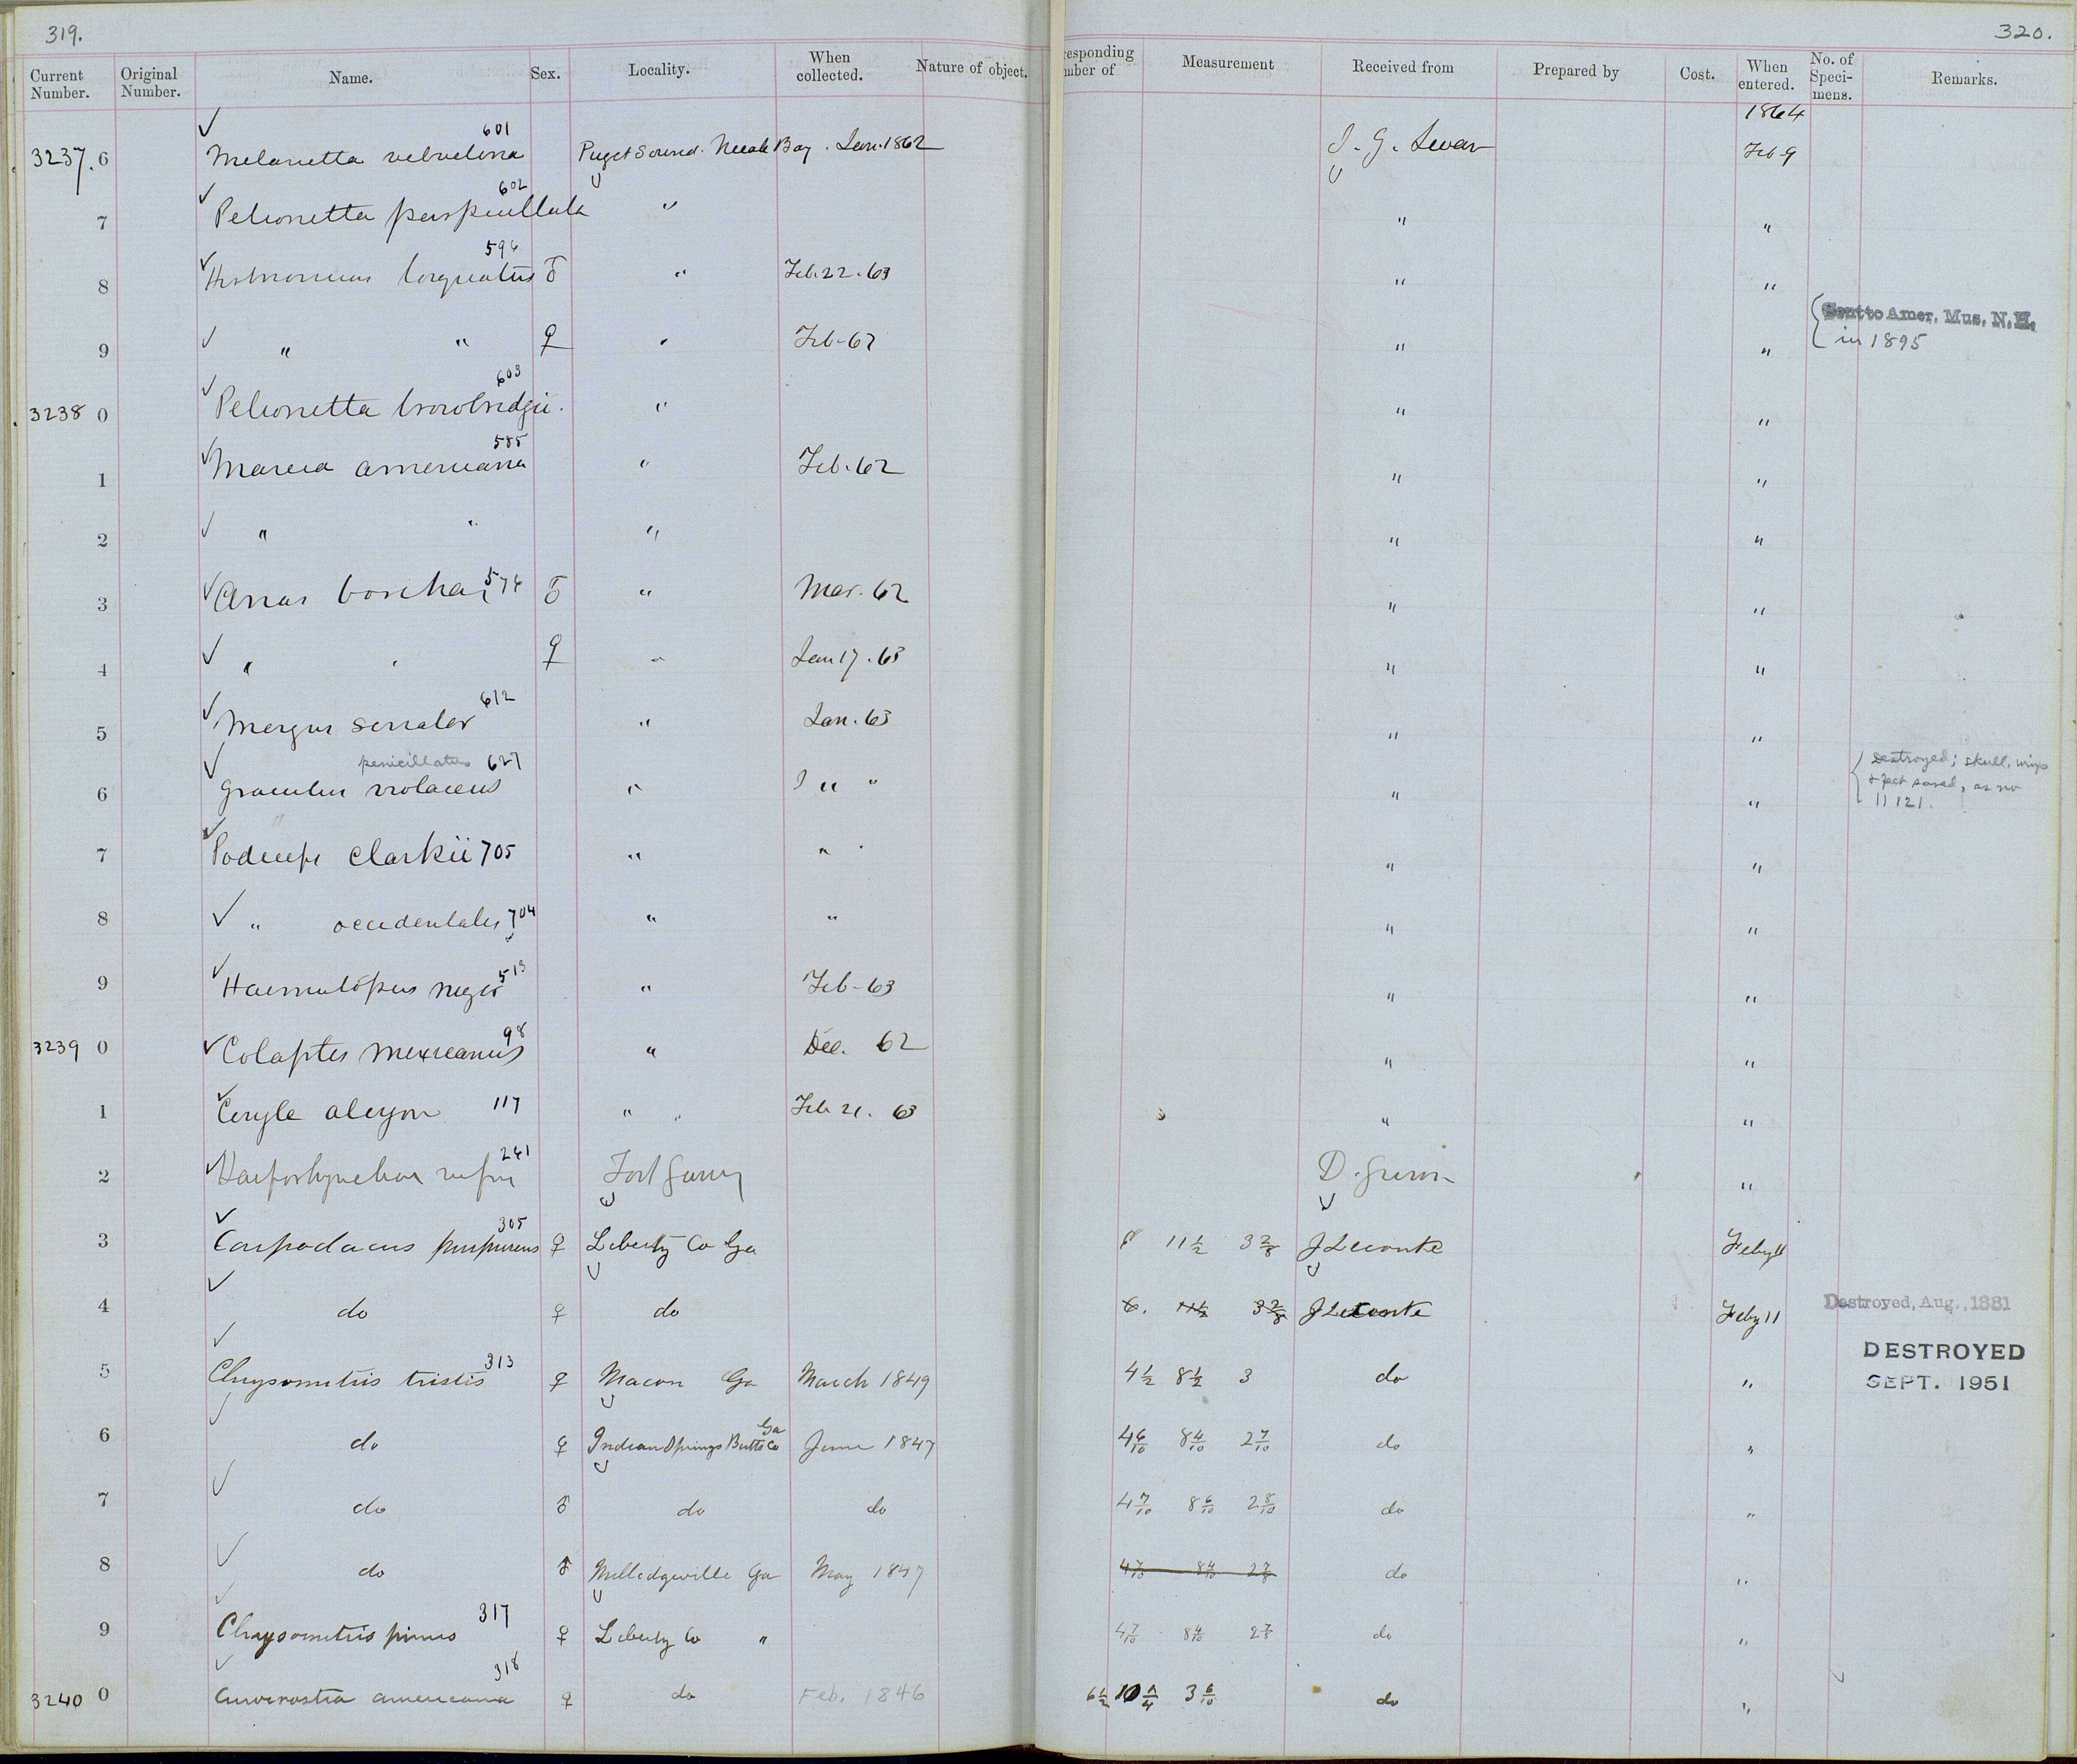 319.
320.
Current Number. Original Number. Name. Sex. Locality. When collected. Nature of object. responding mber of Measurement Received from Prepared by Cost. When entered. No. of Speci-mens. Remarks.
1864
601
3237.6 Melanetta velvetina Puget Sound. Neeah Bay. Jan. 1862 J. G. Swan Feb 9
602
7 Pelionetta perspicillata " " "
594
8 Histrionicus torquatus ♂ " Feb. 22. 63 " "
Sent to Amer. Mus. N.H.
9 " " ♀ " Feb-62 " " in 1895
603
3238 0 Pelionetta trowbridgii. " " "
585
1 " Feb. 62 " "
2 " " " " "
3 Anas boschas 576 ♂ " Mar. 62 " "
4 " " ♀ " Jan 17. 63 " "
612
5 Mergus serrator " Jan. 63 " "
penicillatus 627
6 Graculus violaceus " " " " " Destroyed; skull, wings
& feet saved, as no
11121.
7 Podiceps clarkii 705 " " " "
8 " occidentalis 704 " " " "
513
9 Haematopus niger " Feb-63 " "
98
3239 0 Colaptes mexicanus " Dec. 62 " "
1 Ceryle alcyon 117 " " Feb 21. 63 " "
241
2 Harporhynchus rufus Fort Garry D. Gunn "
305
3 Carpodacus purpureus ♀ Liberty Co Ga 11 1/2 J Leconte Feby 11
4 do ♀ do 6. 11 1/2 J Leconte Feby 11 Destroyed, Aug., 1881
DESTROYED
313
5 Chrysomitris tristis ♀ Macon Ga March 1849 4 1/2 8 1/2 3 do " SEPT. 1951
Ga
6 do ♀ Indian Springs Butts Co June 1847 4 6/10 8 4/10 2 7/10 do "
7 do ♂ do do 4 7/10 8 6/10 2 8/10 do "
8 do ♂ Milledgeville Ga May 1847 do "
317
9 Chrysomitris pinus ♀ Liberty Co " 4 7/10 8 4/10 do "
318
3240 0 Curvirostra americana ♀ do Feb. 1846 6 1/2 10 1/4 3 6/10 do "